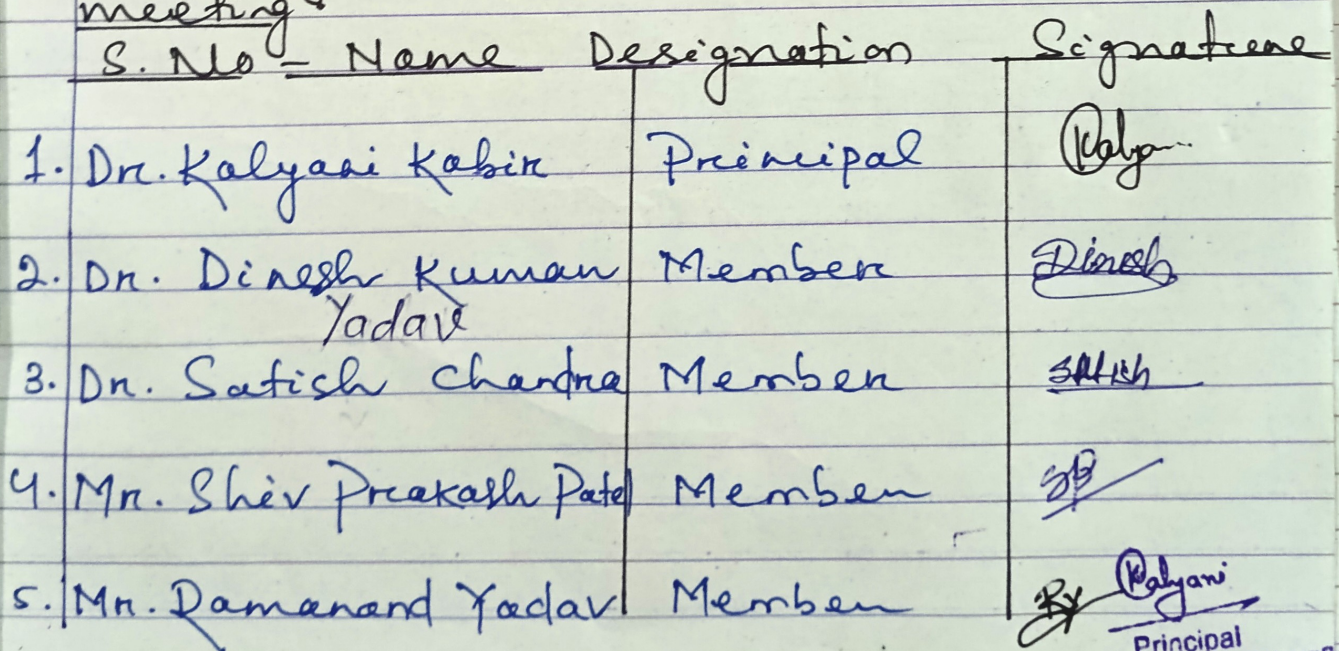 meeting
S. No - Name Designation Signature
1. Dr. Kalyani Kabir Principal Kalyan
2. Dr. Dinesh Kumar Member Dinesh
Yadav
3. Dr. Satish Chandra Member Satish
4. Mr. Shiv Prakash Patel Member SP
5. Mr. Ramanand Yadav Member RY Kalyani
Principal